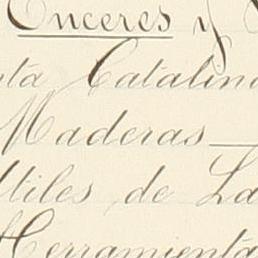 Enceres y
ta Catalina
Maderas
tiles de La
Herramienta